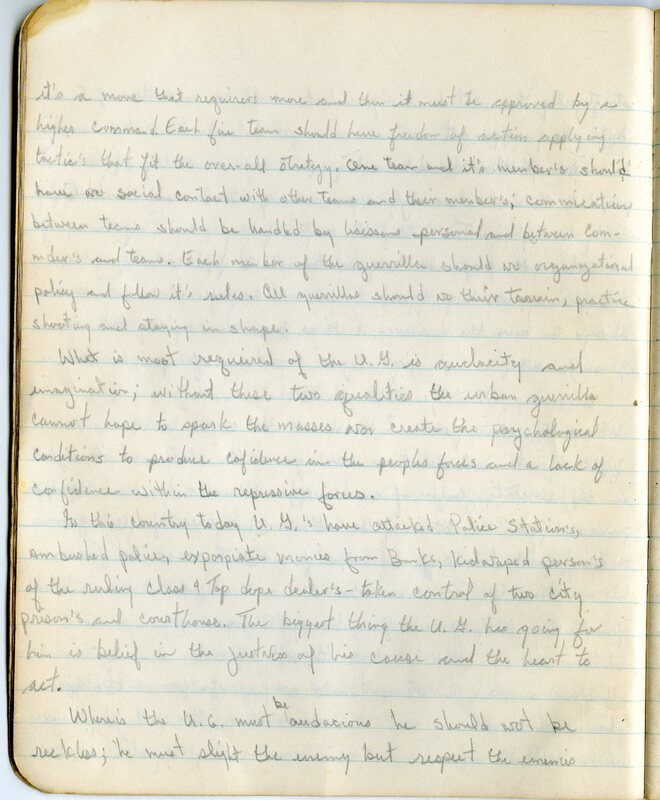 it's a move that requirers more and then it must be approved by a
higher command. Each fire team should have freedom of action applying
tactic's that fit the over-all strategy. One team and it's member's should
have no social contact with other teams and their member's; commication
between teams should be handled by liaisons personal and between Com-
mder's and teams. Each member of the guerrilla should no organizational
policy and follow it's rules. All guerrillas should no their terrain, practice
shooting and staying in shape.
What is most required of the U.G. is audacity and
imagination; without these two qualities the urban guerrilla
cannot hope to spark the masses nor create the psychological
conditions to produce cofidence in the peoples forces and a lack of
confidence within the repressive forces.
In this country today U.G.'s have attacked Police Station's,
ambushed police, monies from Banks, kidnaped person's
of the ruling class & Top dope dealer's - taken control of two city
prison's and courthouse. The biggest thing the U.G. has going for
him is belief in the of his cause and the heart to
act.
Where's the U.G. must be audacious he should not be
reckless; he must slight the enemy but respect the